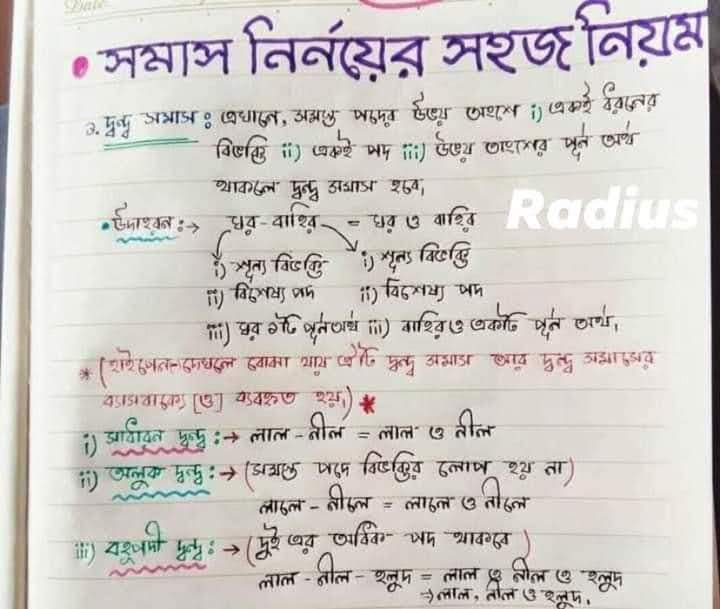 Date
• সমাস নির্নয়ের সহজ নিয়ম
১. দ্বন্দ্ব সমাস ঃ এখানে, সমস্ত পদের উভয় অংশে i) একই ধরনের
বিভক্তি ii) একই পদ iii) উভয় অংশের পূর্ন অর্থ
থাকলে দ্বন্দ্ব সমাস হবে,
• উদাহরন :→ ঘর-বাহির = ঘর ও বাহির
Radius
i) শূন্য বিভক্তি i) শূন্য বিভক্তি
ii) বিশেষ্য পদ ii) বিশেষ্য পদ
iii) ঘর ১টি পূর্নঅর্থ iii) বাহিরও একটি পূর্ন অর্থ,
* (হাইফেন-দেখলে বোঝা যায় এটি দ্বন্দ্ব সমাস আর দ্বন্দ্ব সমাসের
ব্যাসবাক্যে [ও] ব্যবহৃত হয়,) *
i) সাধারন দ্বন্দ্ব :→ লাল - নীল = লাল ও নীল
ii) অলুক দ্বন্দ্ব :→ (সমস্ত পদে বিভক্তির লোপ হয় না)
লালে - নীলে = লালে ও নীলে
iii) বহুপদী দ্বন্দ্ব ঃ → (দুই এর অধিক পদ থাকবে)
লাল - নীল - হলুদ = লাল ও নীল ও হলুদ
⇒ লাল, নীল ও হলুদ,